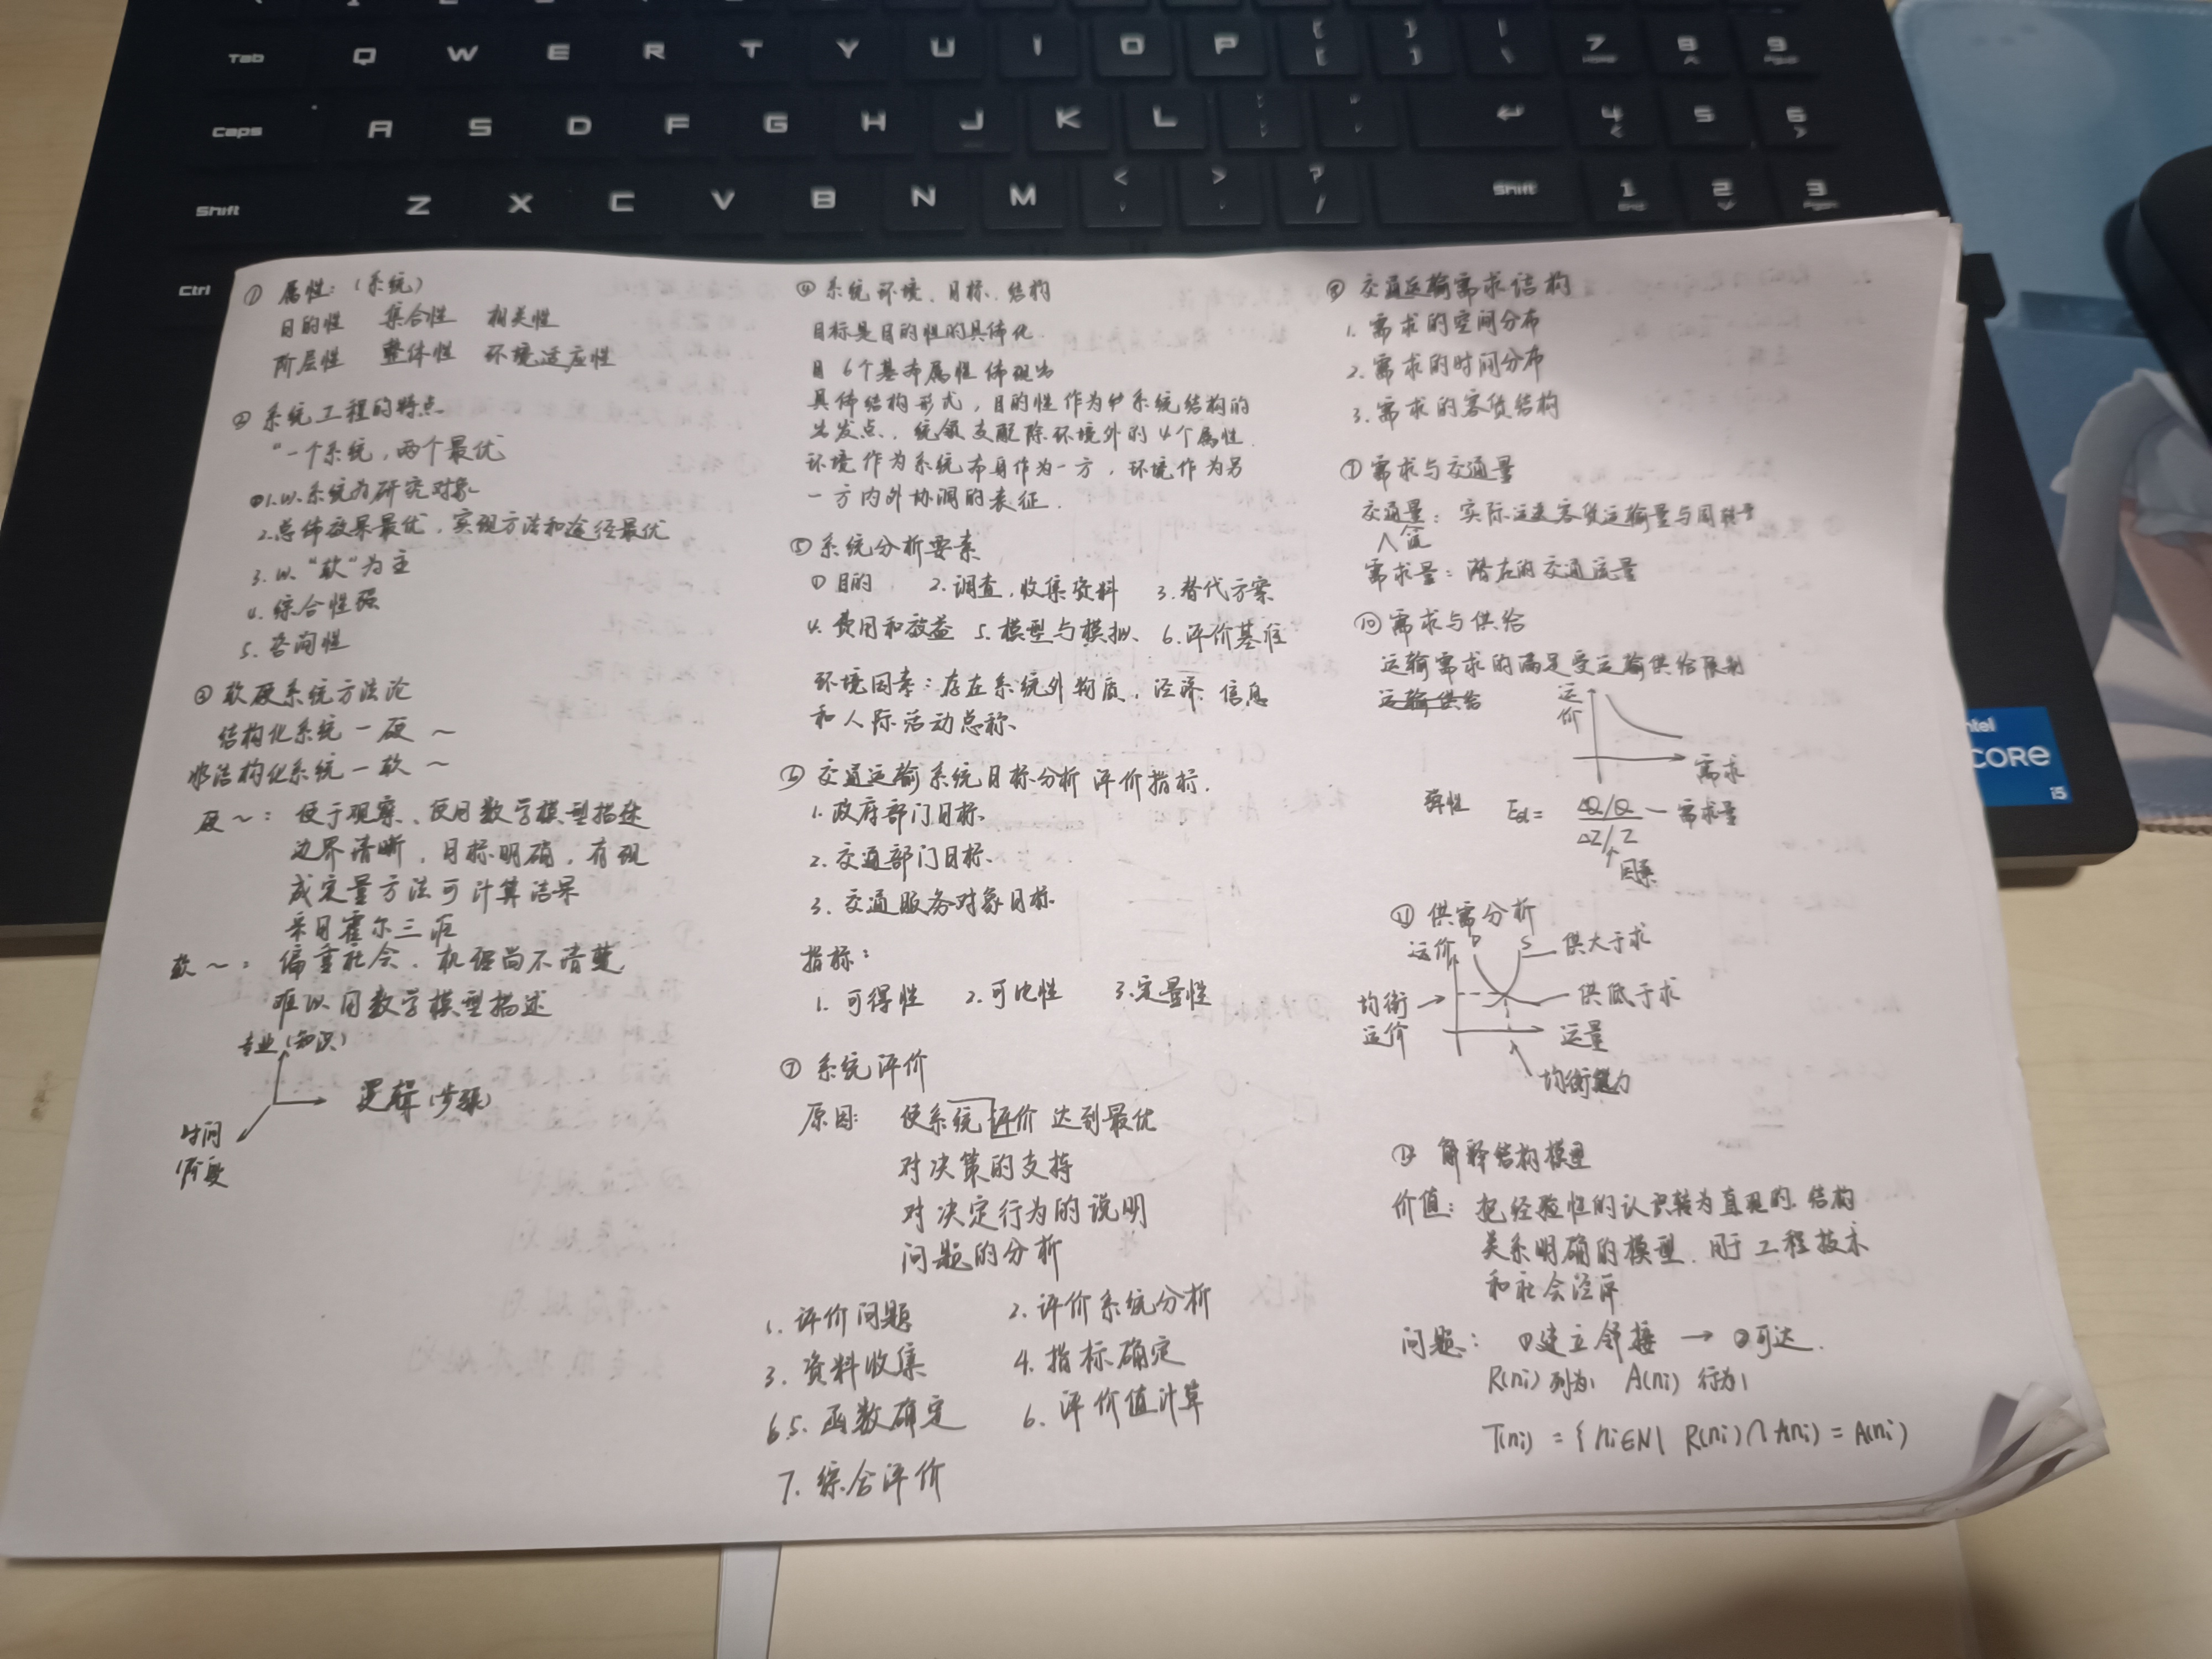 Tab Q W E R T Y U I O P { [ } ] | \ 7 8 9
Caps A S D F G H J K L 4 5 6
Shift Z X C V B N M < > ? / Shift 1 2 3
Ctrl
intel
CORE
i5
① 属性：（系统）
目的性 集合性 相关性
阶层性 整体性 环境适应性
② 系统工程的特点
“一个系统，两个最优
1.以系统为研究对象
2.总体效果最优，实现方法和途径最优
3.以“软”为主
4.综合性强
5.咨询性
③ 软硬系统方法论
结构化系统一硬～
非结构化系统一软～
硬～：便于观察、使用数学模型描述
边界清晰，目标明确，有现
成定量方法可计算结果
采用霍尔三
软～：偏重社会、机理尚不清楚
难以用数学模型描述
专业（知识）
逻辑（步骤）
时间
（阶段
④ 系统环境、目标、结构
目标是目的性的具体化
6个基本属性体现出
具体结构形式，目的性作为系统结构的
出发点，统领支配除环境外的4个属性
环境作为系统本身作为一方，环境作为另
一方内外协调的表征．
⑤ 系统分析要素
① 目的 2.调查，收集资料 3.替代方案
4.费用和效益 5.模型与模拟、 6.评价基准
环境因素：存在系统外物质，经济 信息
和人际活动总称、
⑥ 交通运输系统目标分析 评价指标．
1.政府部门目标
2.交通部门目标、
3.交通服务对象目标
指标：
1.可得性 2.可比性 3.定量性
⑦ 系统评价
原因： 使系统评价 达到最优
对决策的支持
对决定行为的说明
问题的分析
1.评价问题 2.评价系统分析
3.资料收集 4.指标确定
6 5.函数确定 6.评价值计算
7.综合评价
⑧ 交通运输需求结构
1.需求的空间分布
2.需求的时间分布
3.需求的客货结构
需求与交通量
交通量：实际运送客货运输量与周转量
需求量：潜在的交通流量
⑩ 需求与供给
运输需求的满足受运输供给限制
运输供给
运价
需求
弹性 Ed= ΔQ/Q 一需求量
ΔZ/Z
因素
⑪ 供需分析
运价 D S 供大于求
均衡 供低于求
运价 运量
均衡 力
解释结构模型
价值：把经验性的认识转为直观的、结构
关系明确的模型．用于工程技术
和社会经济
问题： ①建立邻接 → ②可达．
R(ni) 列为1 A(ni) 行为1
T(ni) = { ni∈N | R(ni)∩A(ni) = A(ni)